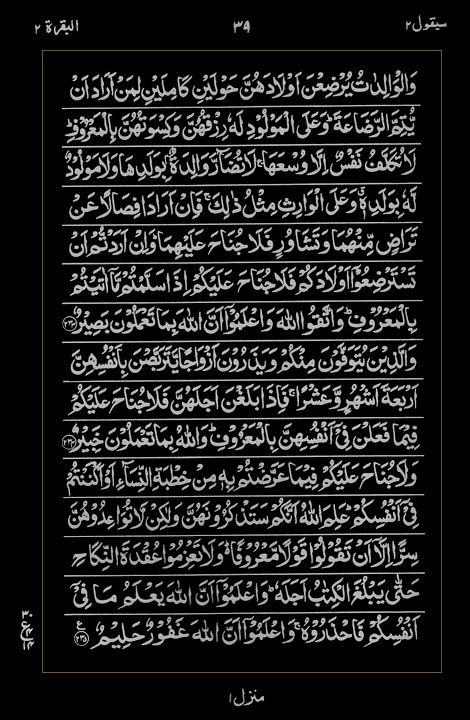 سيقول ٢
٣٩
البقرة ٢
وَالْوَالِدٰتُ يُرْضِعْنَ اَوْلَادَهُنَّ حَوْلَيْنِ كَامِلَيْنِ لِمَنْ اَرَادَ اَنْ
يُّتِمَّ الرَّضَاعَةَ ؕ وَعَلَى الْمَوْلُوْدِ لَهٗ رِزْقُهُنَّ وَكِسْوَتُهُنَّ بِالْمَعْرُوْفِ ؕ
لَا تُكَلَّفُ نَفْسٌ اِلَّا وُسْعَهَا ۚ لَا تُضَآرَّ وَالِدَةٌۢ بِوَلَدِهَا وَلَا مَوْلُوْدٌ
لَّهٗ بِوَلَدِهٖ ۗ وَعَلَى الْوَارِثِ مِثْلُ ذٰلِكَ ۚ فَاِنْ اَرَادَا فِصَالًا عَنْ
تَرَاضٍ مِّنْهُمَا وَتَشَاوُرٍ فَلَا جُنَاحَ عَلَيْهِمَا ؕ وَاِنْ اَرَدْتُّمْ اَنْ
تَسْتَرْضِعُوْٓا اَوْلَادَكُمْ فَلَا جُنَاحَ عَلَيْكُمْ اِذَا سَلَّمْتُمْ مَّآ اٰتَيْتُمْ
بِالْمَعْرُوْفِ ؕ وَاتَّقُوا اللّٰهَ وَاعْلَمُوْٓا اَنَّ اللّٰهَ بِمَا تَعْمَلُوْنَ بَصِيْرٌ ﴿٢٣٣﴾
وَالَّذِيْنَ يُتَوَفَّوْنَ مِنْكُمْ وَيَذَرُوْنَ اَزْوَاجًا يَّتَرَبَّصْنَ بِاَنْفُسِهِنَّ
اَرْبَعَةَ اَشْهُرٍ وَّعَشْرًا ۚ فَاِذَا بَلَغْنَ اَجَلَهُنَّ فَلَا جُنَاحَ عَلَيْكُمْ
فِيْمَا فَعَلْنَ فِيْٓ اَنْفُسِهِنَّ بِالْمَعْرُوْفِ ؕ وَاللّٰهُ بِمَا تَعْمَلُوْنَ خَبِيْرٌ ﴿٢٣٤﴾
وَلَا جُنَاحَ عَلَيْكُمْ فِيْمَا عَرَّضْتُمْ بِهٖ مِنْ خِطْبَةِ النِّسَآءِ اَوْ اَكْنَنْتُمْ
فِيْٓ اَنْفُسِكُمْ ؕ عَلِمَ اللّٰهُ اَنَّكُمْ سَتَذْكُرُوْنَهُنَّ وَلٰكِنْ لَّا تُوَاعِدُوْهُنَّ
سِرًّا اِلَّآ اَنْ تَقُوْلُوْا قَوْلًا مَّعْرُوْفًا ؕ وَلَا تَعْزِمُوْا عُقْدَةَ النِّكَاحِ
حَتّٰى يَبْلُغَ الْكِتٰبُ اَجَلَهٗ ؕ وَاعْلَمُوْٓا اَنَّ اللّٰهَ يَعْلَمُ مَا فِيْٓ
اَنْفُسِكُمْ فَاحْذَرُوْهُ ۚ وَاعْلَمُوْٓا اَنَّ اللّٰهَ غَفُوْرٌ حَلِيْمٌ ﴿٢٣٥﴾
منزل ١